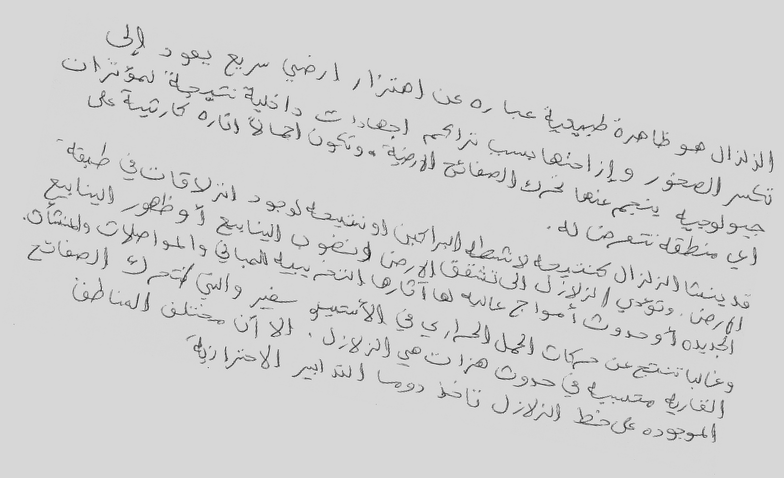 الزلزال هو ظاهرة طبيعية عباره عن اهتزاز ارضي سريع يعود إلى
تكسر الصخور وإزاحتها بسبب تراكم اجهادات داخلية نتيجة لمؤثرات
جيولوجيه ينجم عنها تحرك الصفائح الارضية. وتكون اجمالا اثاره كارثية على
اي منطقه تتعرض له.
قد ينشا الزلزال كنتيجه لانشطه البراكين او نتيجه لوجود انزلاقات في طبقة
الارض. وتؤدي الزلازل الى تشقق الارض ونضوب الينابيع أو ظهور الينابيع
الجديده أو حدوث أمواج عاليه لها آثارها التخريبيه المباني والمواصلات والمنشأت.
وغالبا تنتج عن حركات الحمل الحراري في الأستينو سفير والتي تحرك الصفائح
القاريه متسببه في حدوث هزات هي الزلازل. الا أن مختلف المناطق
الموجوده على خط الزلازل تاخذ دوما التدابير الاحترازية